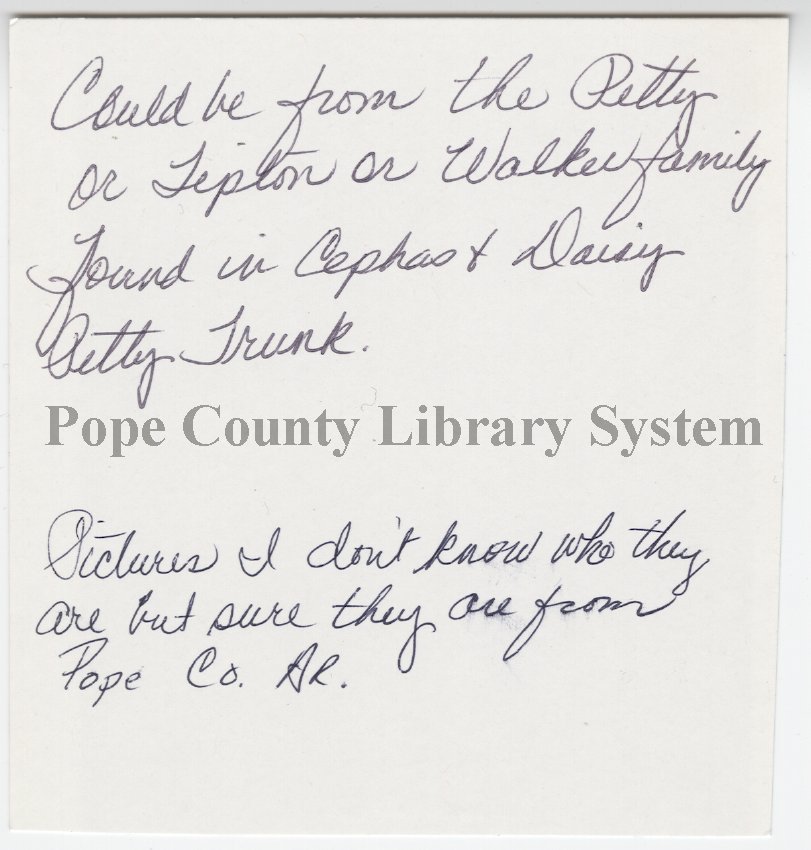 Could be from the Petty
or Tipton or Walker family
found in Cephas & Daisy
Petty Trunk.
Pope County Library System
Pictures I don't know who they
are but sure they are from
Pope Co. AR.